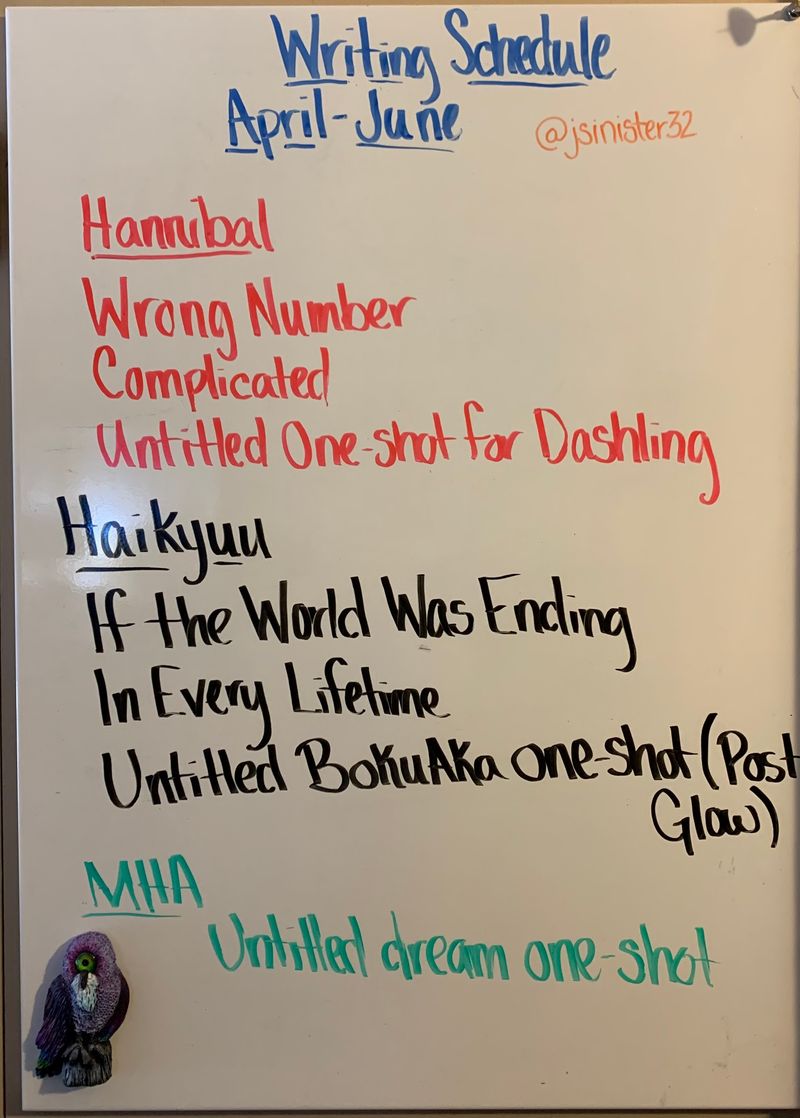 Writing Schedule
April-June
@jsinister32
Hannibal
Wrong Number
Complicated
Untitled One-shot for Dashling
Haikyuu
If the World Was Ending
In Every Lifetime
Untitled BokuAka one-shot (Post
Glow)
MHA
Untitled dream one-shot